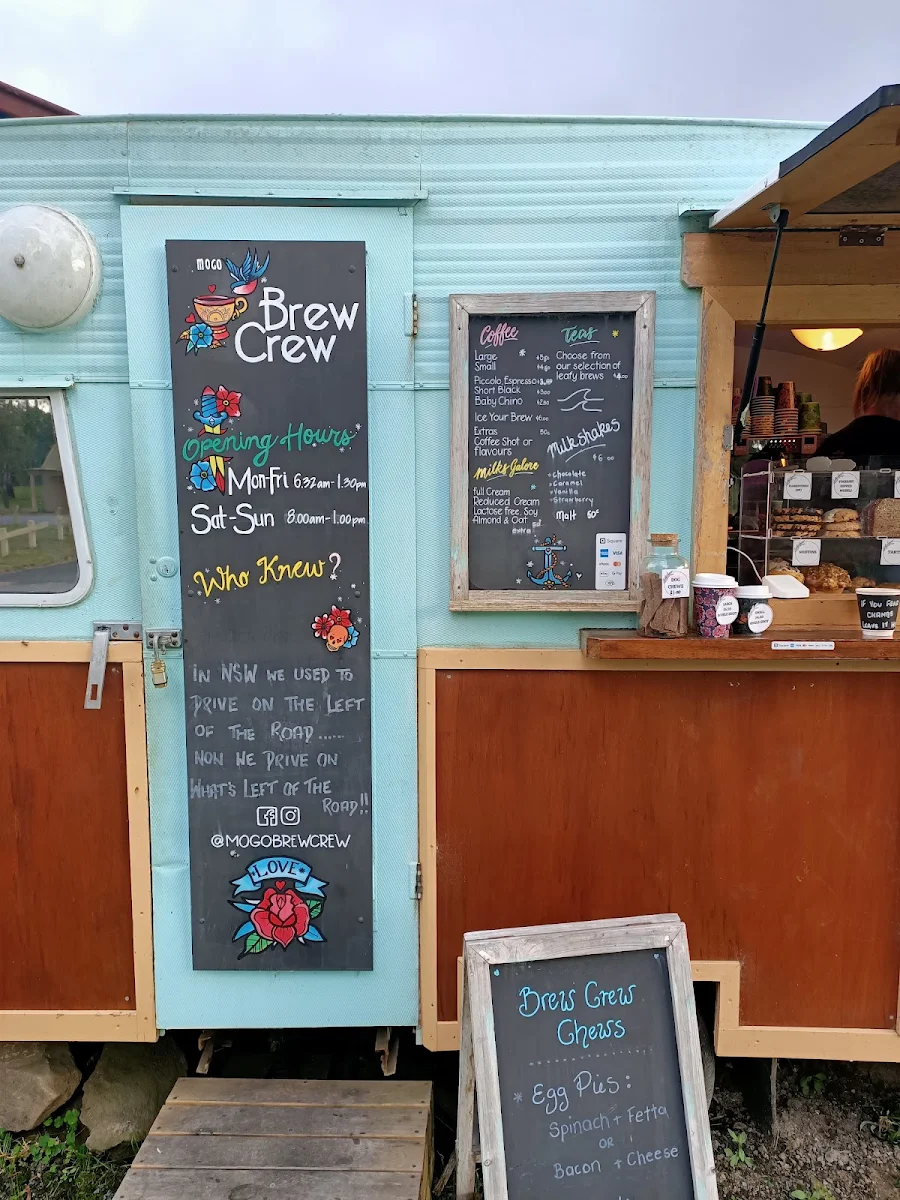 MOGO
Brew
Crew
Opening Hours
Mon-Fri 6.32am-1.30pm
Sat-Sun 8.00am-1.00pm
Who Knew?
IN NSW WE USED TO
DRIVE ON THE LEFT
OF THE ROAD.....
NOW WE DRIVE ON
WHAT'S LEFT OF THE
ROAD!!
@MOGOBREWCREW
LOVE
Coffee
Large
Small
Piccolo Espresso
Short Black
Baby Chino
Ice Your Brew
Extras
Coffee Shot or
flavours
Milks Galore
full Cream
Reduced Cream
Lactose free, Soy
Almond & Oat
extra
Teas
Choose from
our selection of
leafy brews
Milkshakes
Chocolate
Caramel
Vanilla
Strawberry
Malt 50c
Square
VISA
DOG
CHEWS
IF YOU FEAR
CHANGE
LEAVE IT
Brew Crew
Chews
Egg Pies:
Spinach + Fetta
OR
Bacon + Cheese